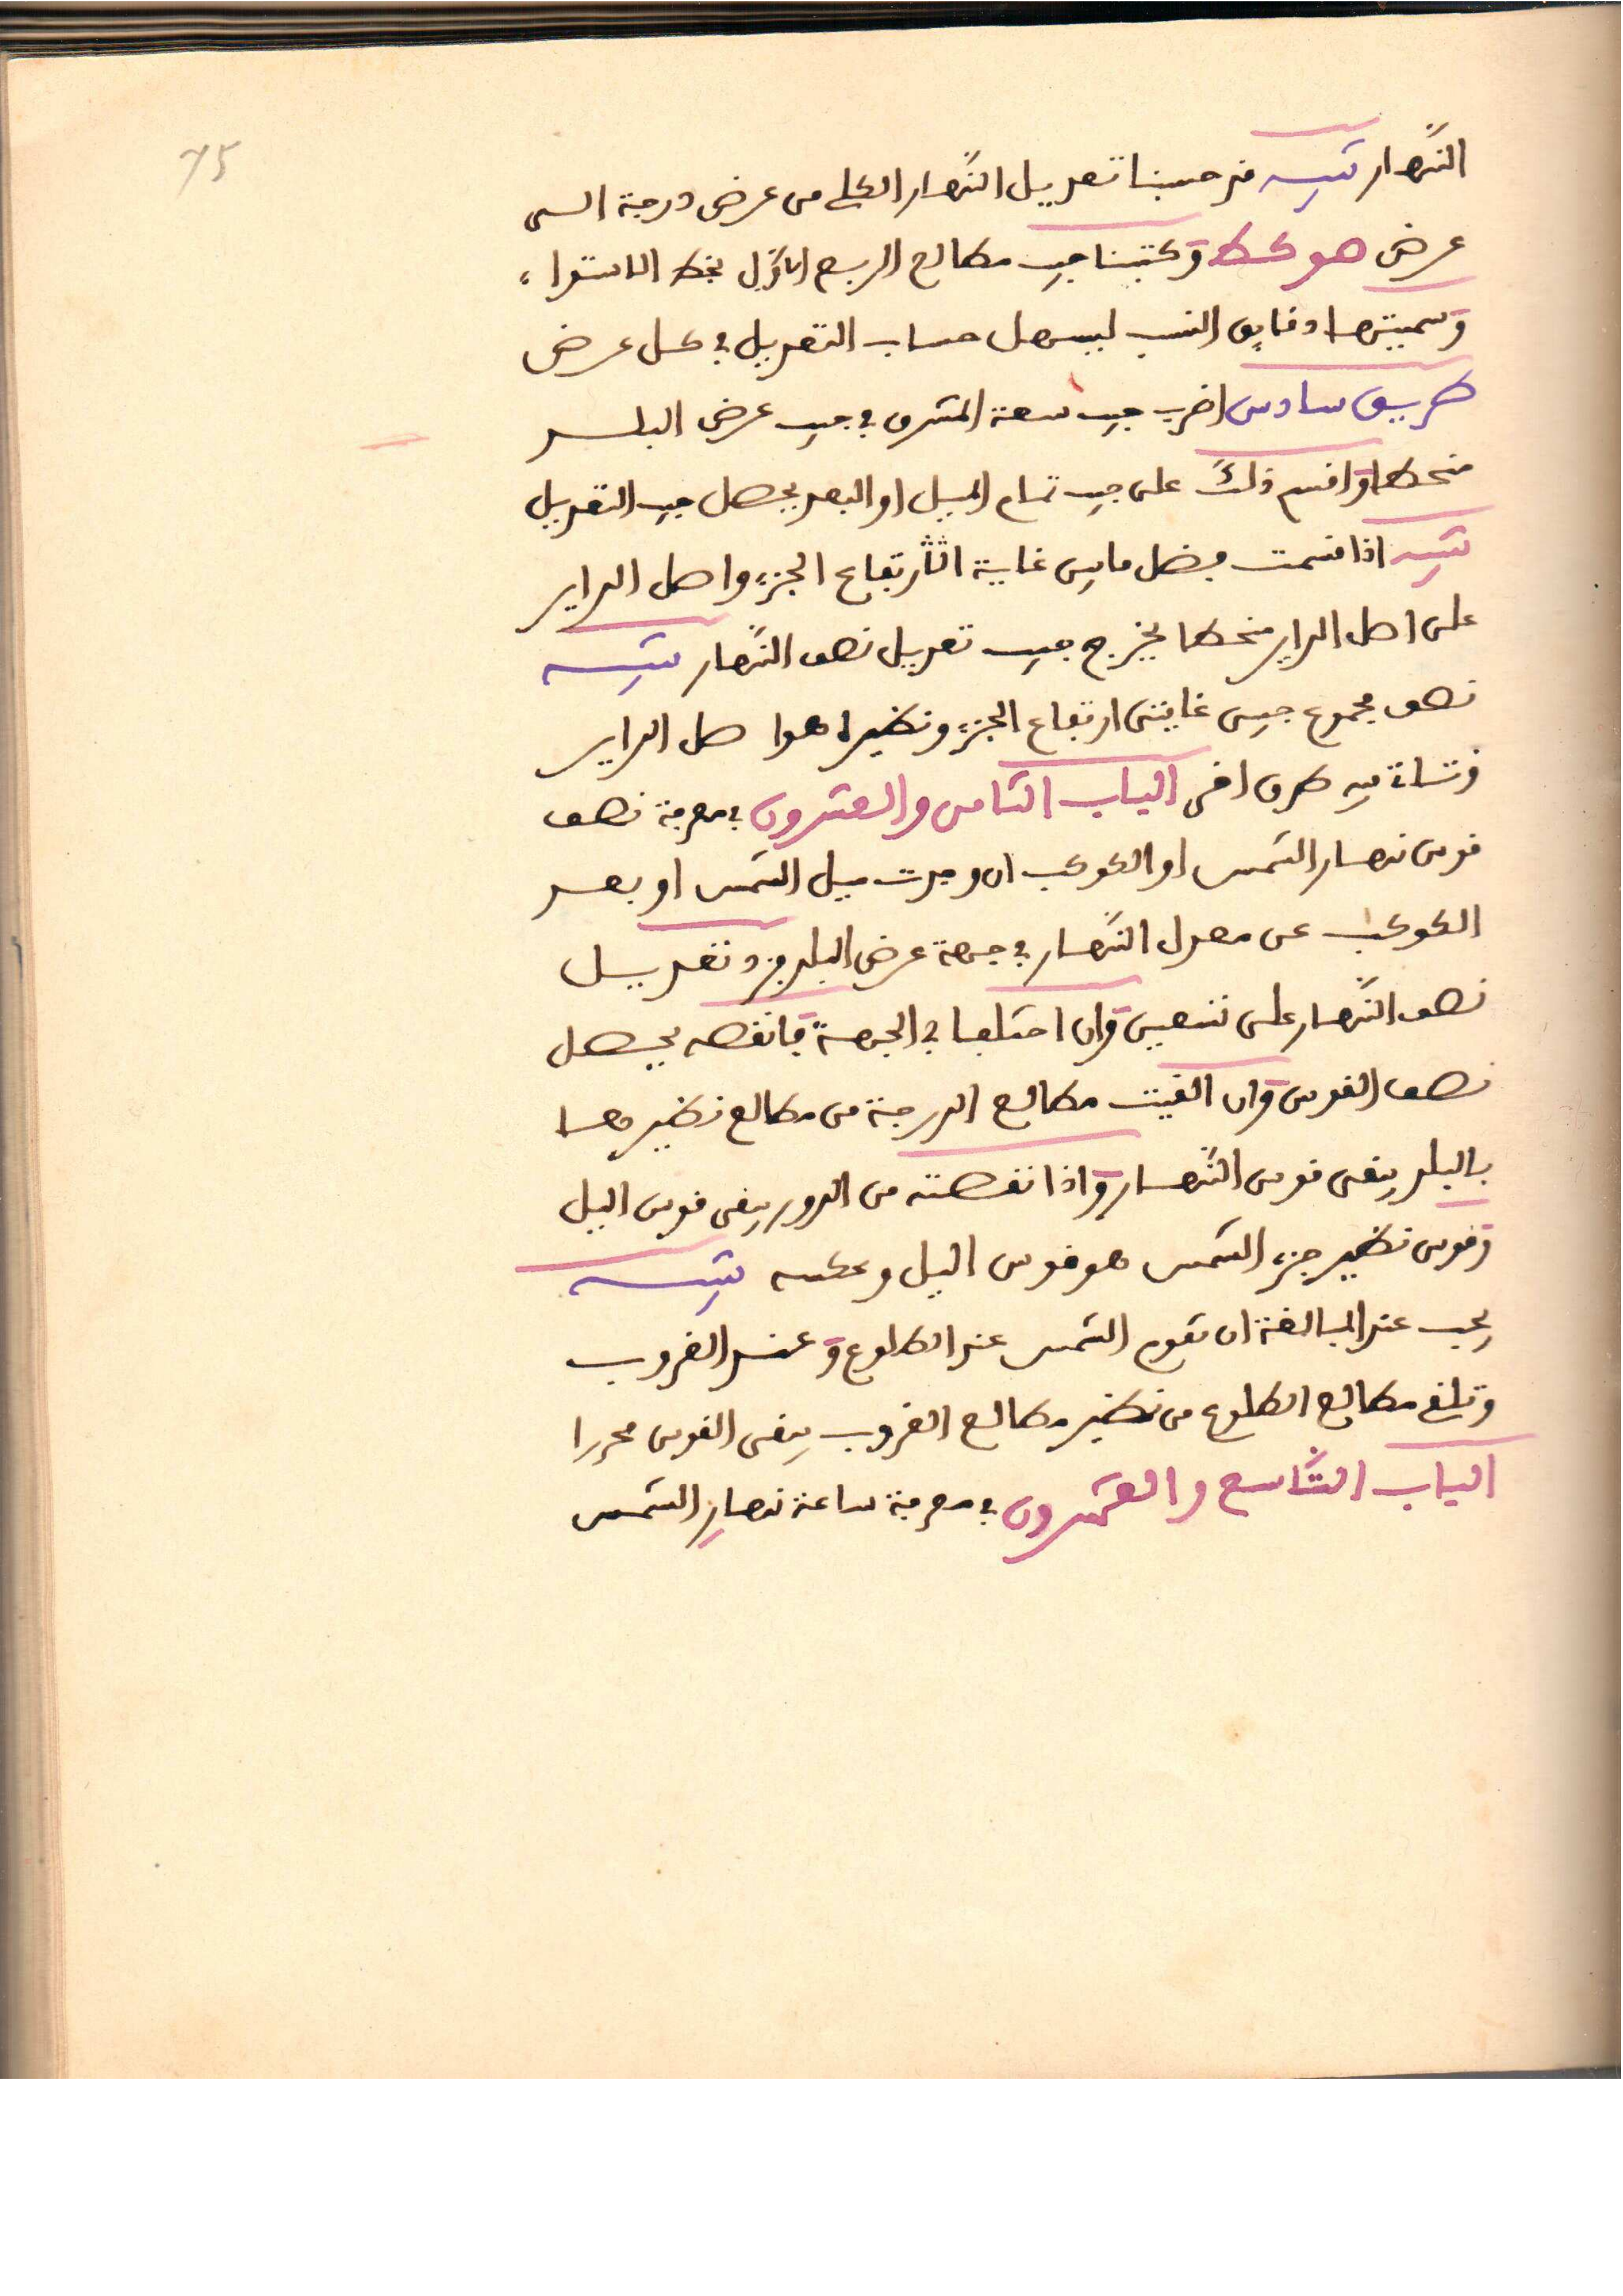 75
النهار تنبيه قد حسبنا تعديل النهار الكلي من عرض درجة الى
عرض هو كط وكتبنا جيب مطالع الربع الاول بخط الاستواء
وسميتها دقايق النسب ليسهل حساب التعديل في كل عرض
طريق سادس اضرب جيب سعة المشرق في جيب عرض البلد
منحطا واقسم ذلك على جيب تمام الميل او البعد يحصل جيب التعديل
تنبيه اذا قسمت فضل مابين غاية ارتفاع الجزء واصل الداير
على اصل الداير منحطا يخرج جيب تعديل نصف النهار تنبيه
نصف مجموع جيبي غايتي ارتفاع الجزء ونظيره هو اصل الداير
وتتأتى فيه طرق اخر الباب الثامن والعشرون في معرفة نصف
قوس نهار الشمس او الكوكب ان وجدت ميل الشمس او بعد
الكوكب عن معدل النهار في جهة عرض البلد فزد تعديل
نصف النهار على تسعين وان اختلفا في الجهة فانقصه يحصل
نصف القوس وان القيت مطالع الدرجة من مطالع نظيرها
بالبلد يبقى قوس النهار واذا نقصته من الدور يبقى قوس اليل
وقوس نظير جزء الشمس هو قوس اليل وعكسه تنبيه
يجب عند المبالغة ان تقوم الشمس عند الطلوع وعند الغروب
وتلغ مطالع الطلوع من نظير مطالع الغروب يبقى القوس محررا
الباب التاسع والعشرون في معرفة ساعة نهار الشمس